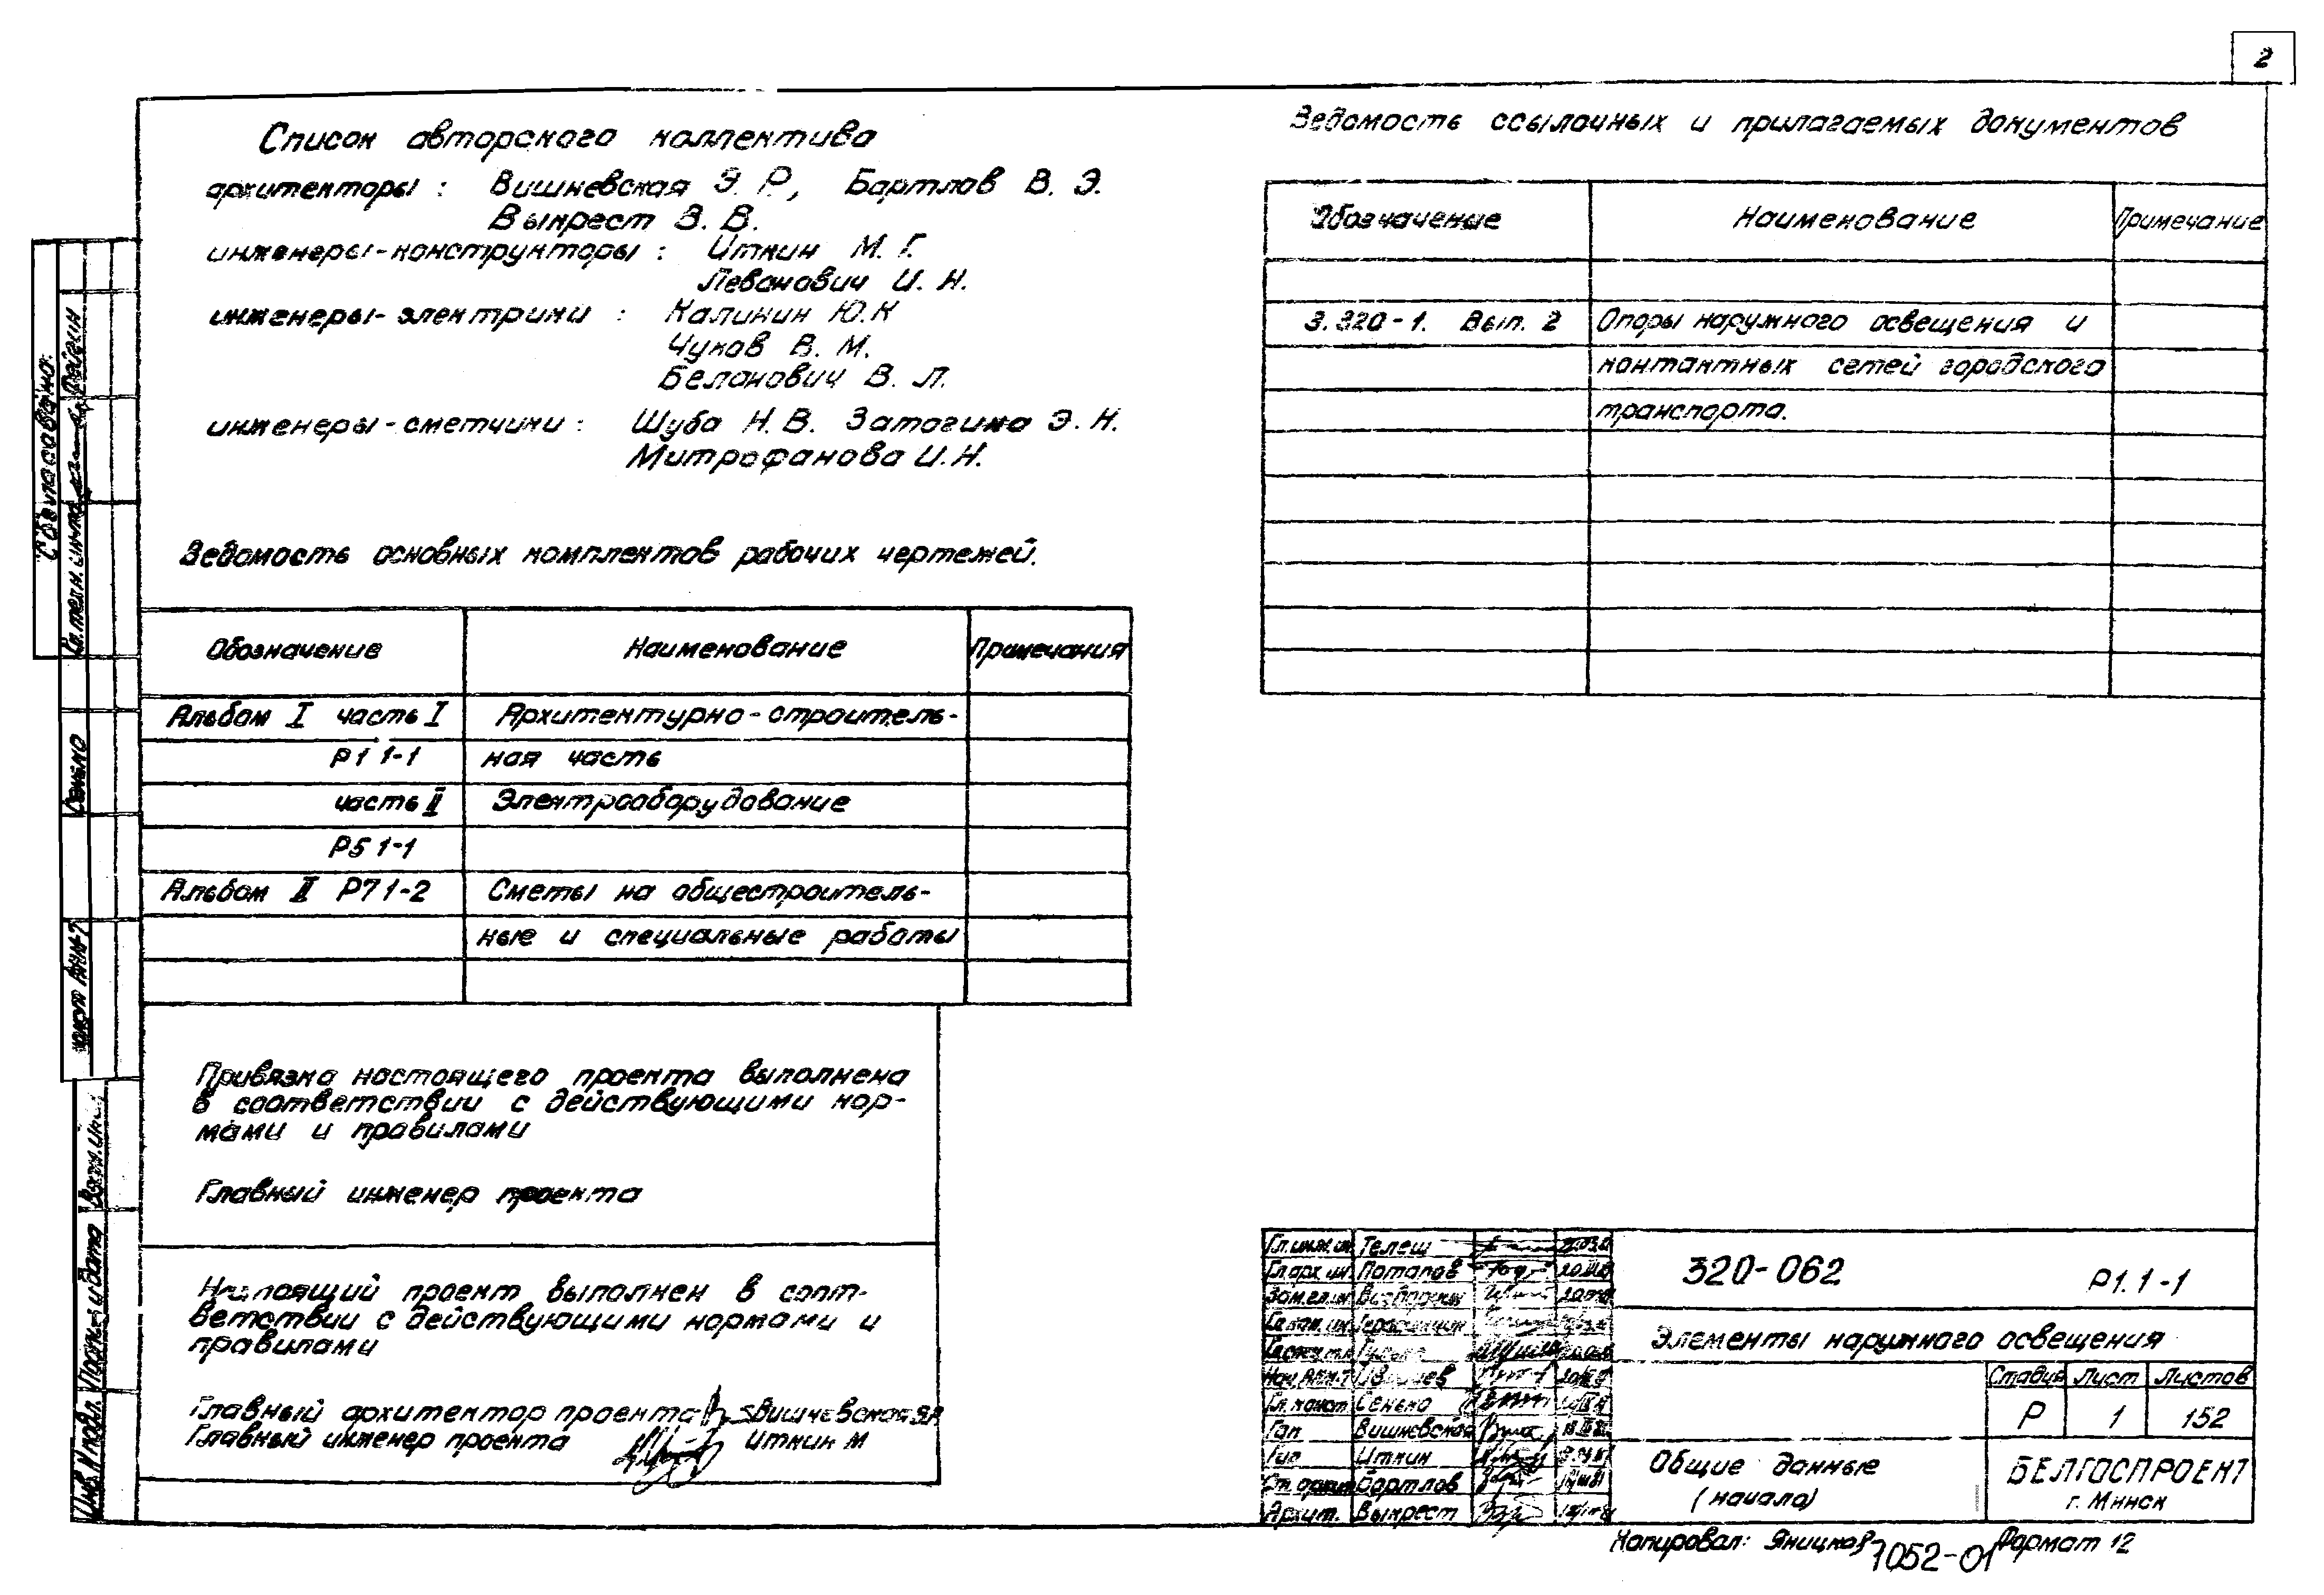 2
Список авторского коллектива
архитекторы : Вишневская Э. Р, Бартлов В. Э.
Выкрест В. В.
инженеры-конструкторы : Иткин М. Г.
Леванович И. Н.
инженеры-электрики : Калинин Ю.К
Чуков В. М.
Беланович В. Л.
инженеры-сметчики : Шуба Н. В. Затагина Э. Н.
Митрофанова И. Н.
Ведомость основных комплектов рабочих чертежей.
Обозначение Наименование Примечания
Альбом I часть I Архитектурно-строитель-
Р1 1-1 ная часть
часть II Электрооборудование
Р5 1-1
Альбом II Р7 1-2 Сметы на общестроитель-
ные и специальные работы
Привязка настоящего проекта выполнена
в соответствии с действующими нор-
мами и правилами
Главный инженер проекта
Настоящий проект выполнен в соот-
ветствии с действующими нормами и
правилами
Главный архитектор проекта Вишневская Э.Р
Главный инженер проекта Иткин М
Ведомость ссылочных и прилагаемых документов
Обозначение Наименование Примечание
3.320-1. Вып. 2 Опоры наружного освещения и
контактных сетей городского
транспорта.
Гл.инж.ин Телеш
Гл.арх.ин Потапов
Зам.гл.ин
Нач.АПМ-7
Гл.конст Сенько
Гап Вишневская
Гип Иткин
Ст.архит Бартлов
Архит. Выкрест
320-062 Р1. 1-1
Элементы наружного освещения
Стадия Лист Листов
Р 1 152
Общие данные
(начало)
БЕЛГОСПРОЕКТ
г. Минск
Копировал: Яницкая
7052-01
Формат 12
Согласовано:
Сенько
Взам.инв.
Подпись и дата
Инв.Nподл.